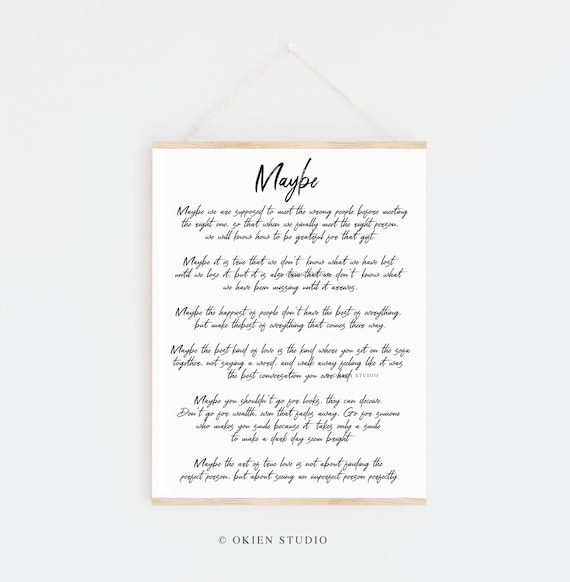 Maybe
Maybe we are supposed to meet the wrong people before meeting
the right one, so that when we finally meet the right person,
we will know how to be grateful for that gift.
Maybe it is true that we don't know what we have lost
until we lose it, but it is also true that we don't know what
we have been missing until it arrives.
Maybe the happiest of people don't have the best of everything,
but make thebest of everything that comes there way.
Maybe the best kind of love is the kind where you sit on the sofa
together, not saying a word, and walk away feeling like it was
the best conversation you ever had. STUDIO
Maybe you shouldn't go for looks, they can deceive.
Don't go for wealth, even that fades away. Go for someone
who makes you smile because it takes only a smile
to make a dark day seem bright
Maybe the art of true love is not about finding the
perfect person, but about seeing an imperfect person perfectly.
© OKIEN STUDIO